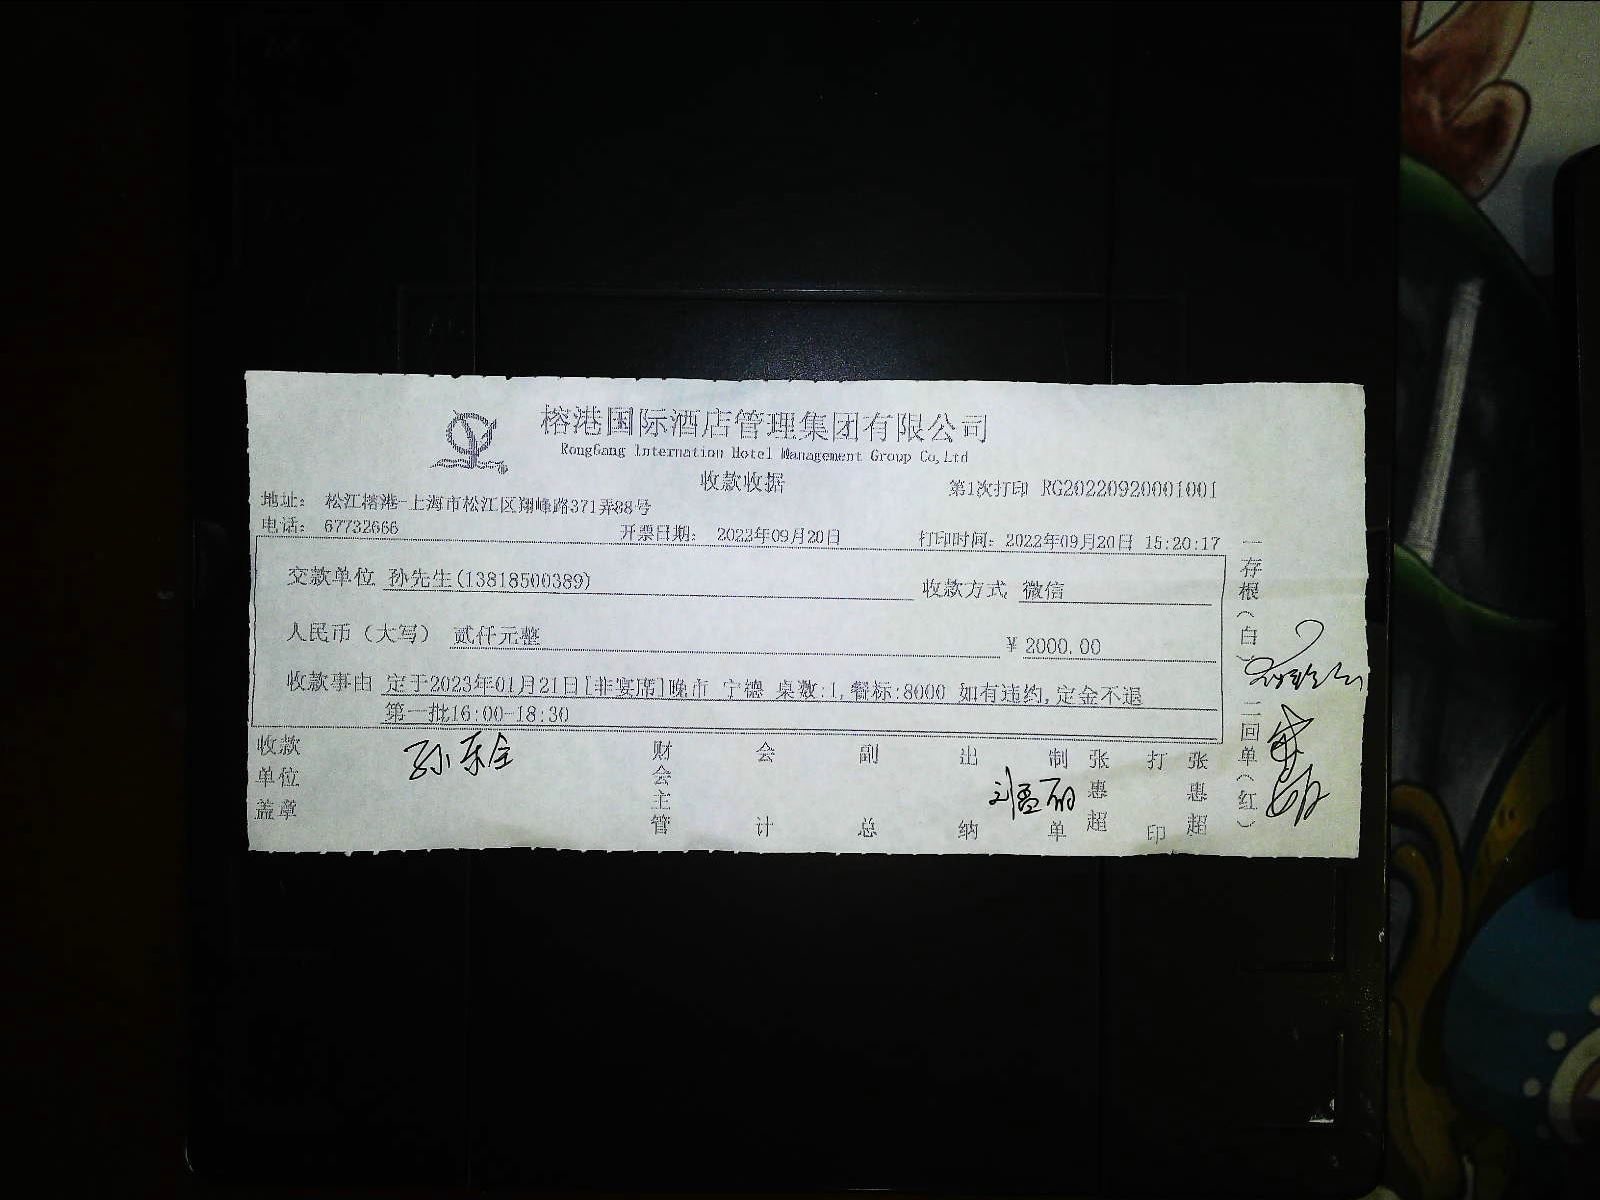 榕港国际酒店管理集团有限公司
RongGang Internation Hotel Management Group Co,Ltd
收款收据
第1次打印 RG20220920001001
地址： 松江榕港-上海市松江区翔峰路371弄88号
电话： 67732666
开票日期： 2022年09月20日
打印时间：2022年09月20日 15:20:17
交款单位 孙先生(13818500389)
收款方式 微信
人民币（大写） 贰仟元整
¥ 2000.00
收款事由 定于2023年01月21日[非宴席]晚市 宁德 桌数:1,餐标:8000 如有违约,定金不退
第一批16:00-18:30
收款单位盖章
财会主管
会计
副总
出纳
制单
张惠超
打印
张惠超
一存根(白)
二回单(红)